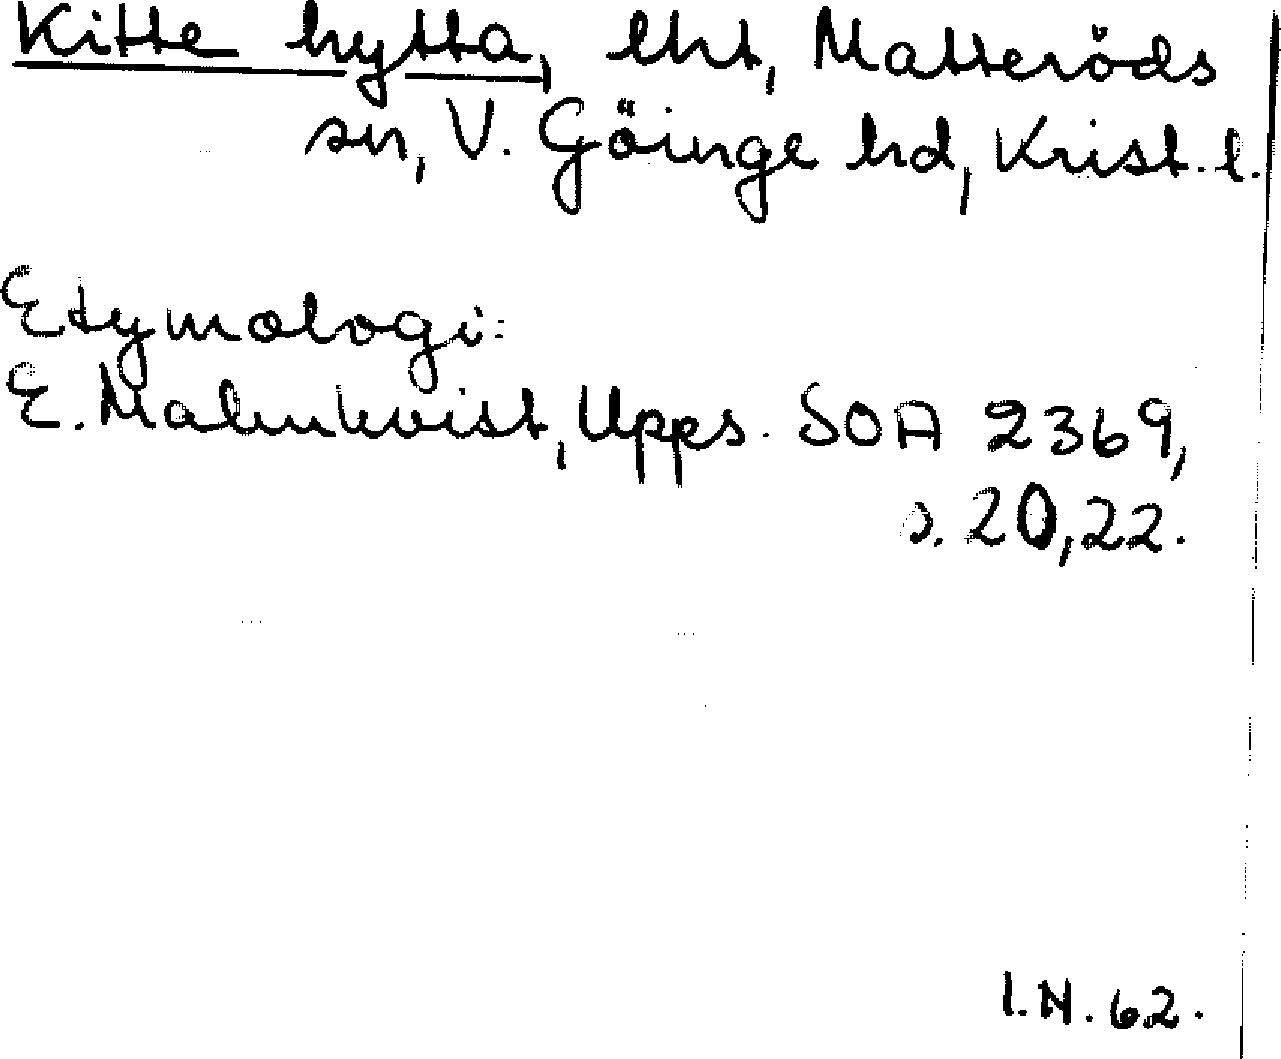 Kitte hytta, lht, Matteröds
sn, V. Göinge hd, Krist. l.
Etymologi:
E. Malmkvist, Upps. SOA 2369,
s. 20, 22.
I.N. 62.